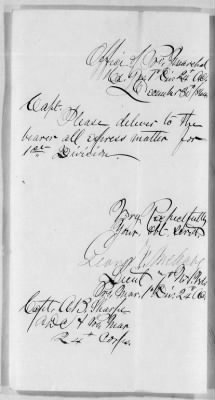 Office of Pro. Marshal
Hd. Qrs 1st Div. 24 A.C.
December 30th 1864
Capt.
Please deliver to the
bearer all express matter for
1st Division.
Very Respectfully
Your obt. Servt.
George W.
Lieut 7th N.H. Vols
Pro. Mar. 1st Div. 24 A.C.
Capt. A B Sharpe
A D C & Pro Mar
24th Corps.